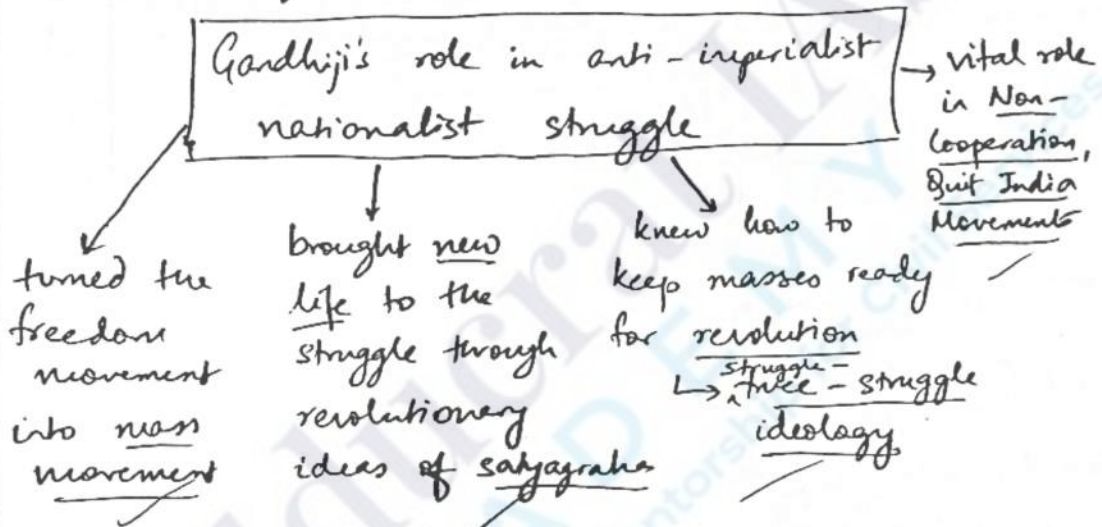 Gandhiji's role in anti-imperialist
nationalist struggle
→ vital role
in Non-
Cooperation,
Quit India
Movements
turned the
freedom
movement
into mass
movement
brought new
life to the
struggle through
revolutionary
ideas of satyagraha
knew how to
keep masses ready
for revolution
↳ struggle-truce-struggle
ideology